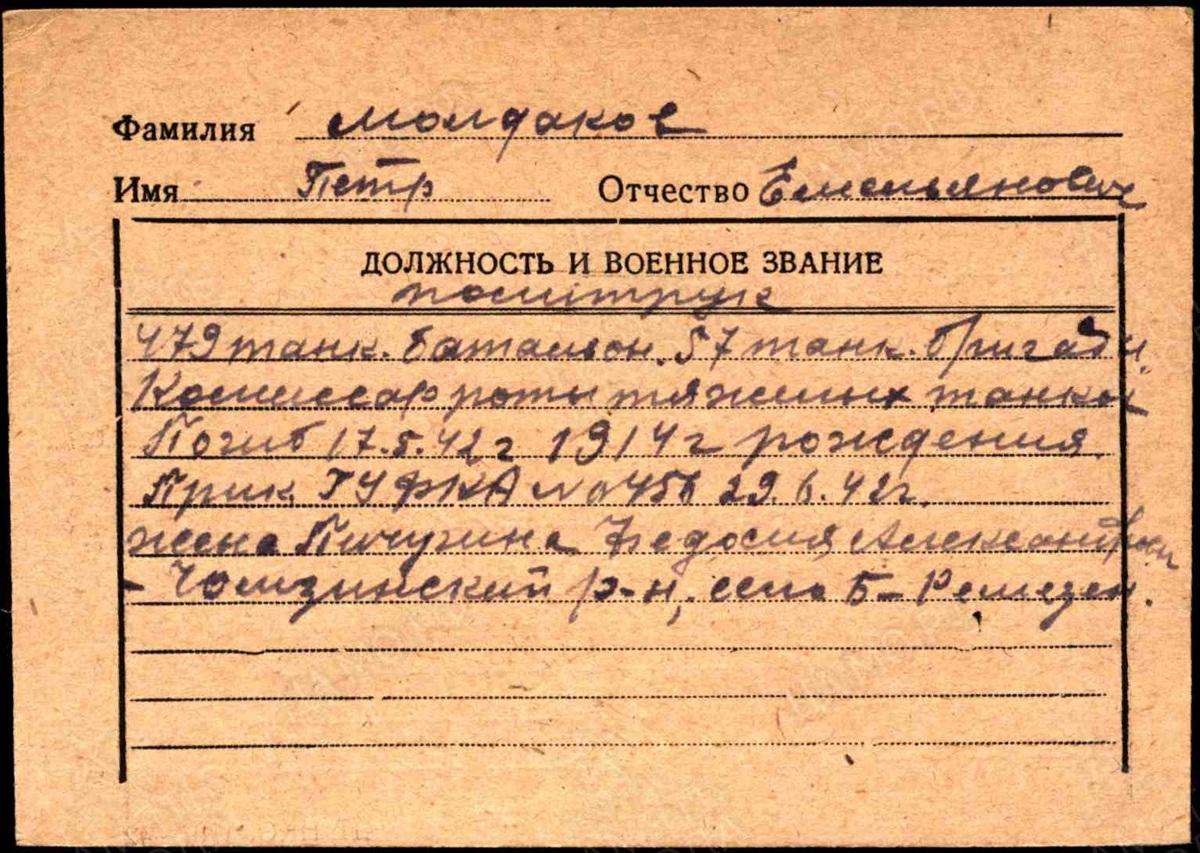 Фамилия Молдаков
Имя Петр Отчество Емельянович
ДОЛЖНОСТЬ И ВОЕННОЕ ЗВАНИЕ
политрук
479 танк. батальон. 57 танк. бригады.
Комиссар роты тяжелых танков
Погиб 17.5.42 г 1914 г рождения.
Прик. ГУФКА № 0456 29.6.42 г.
жена Пичугина Федосия Александровн
- Чамзинский р-н, село Б-Ремезен.